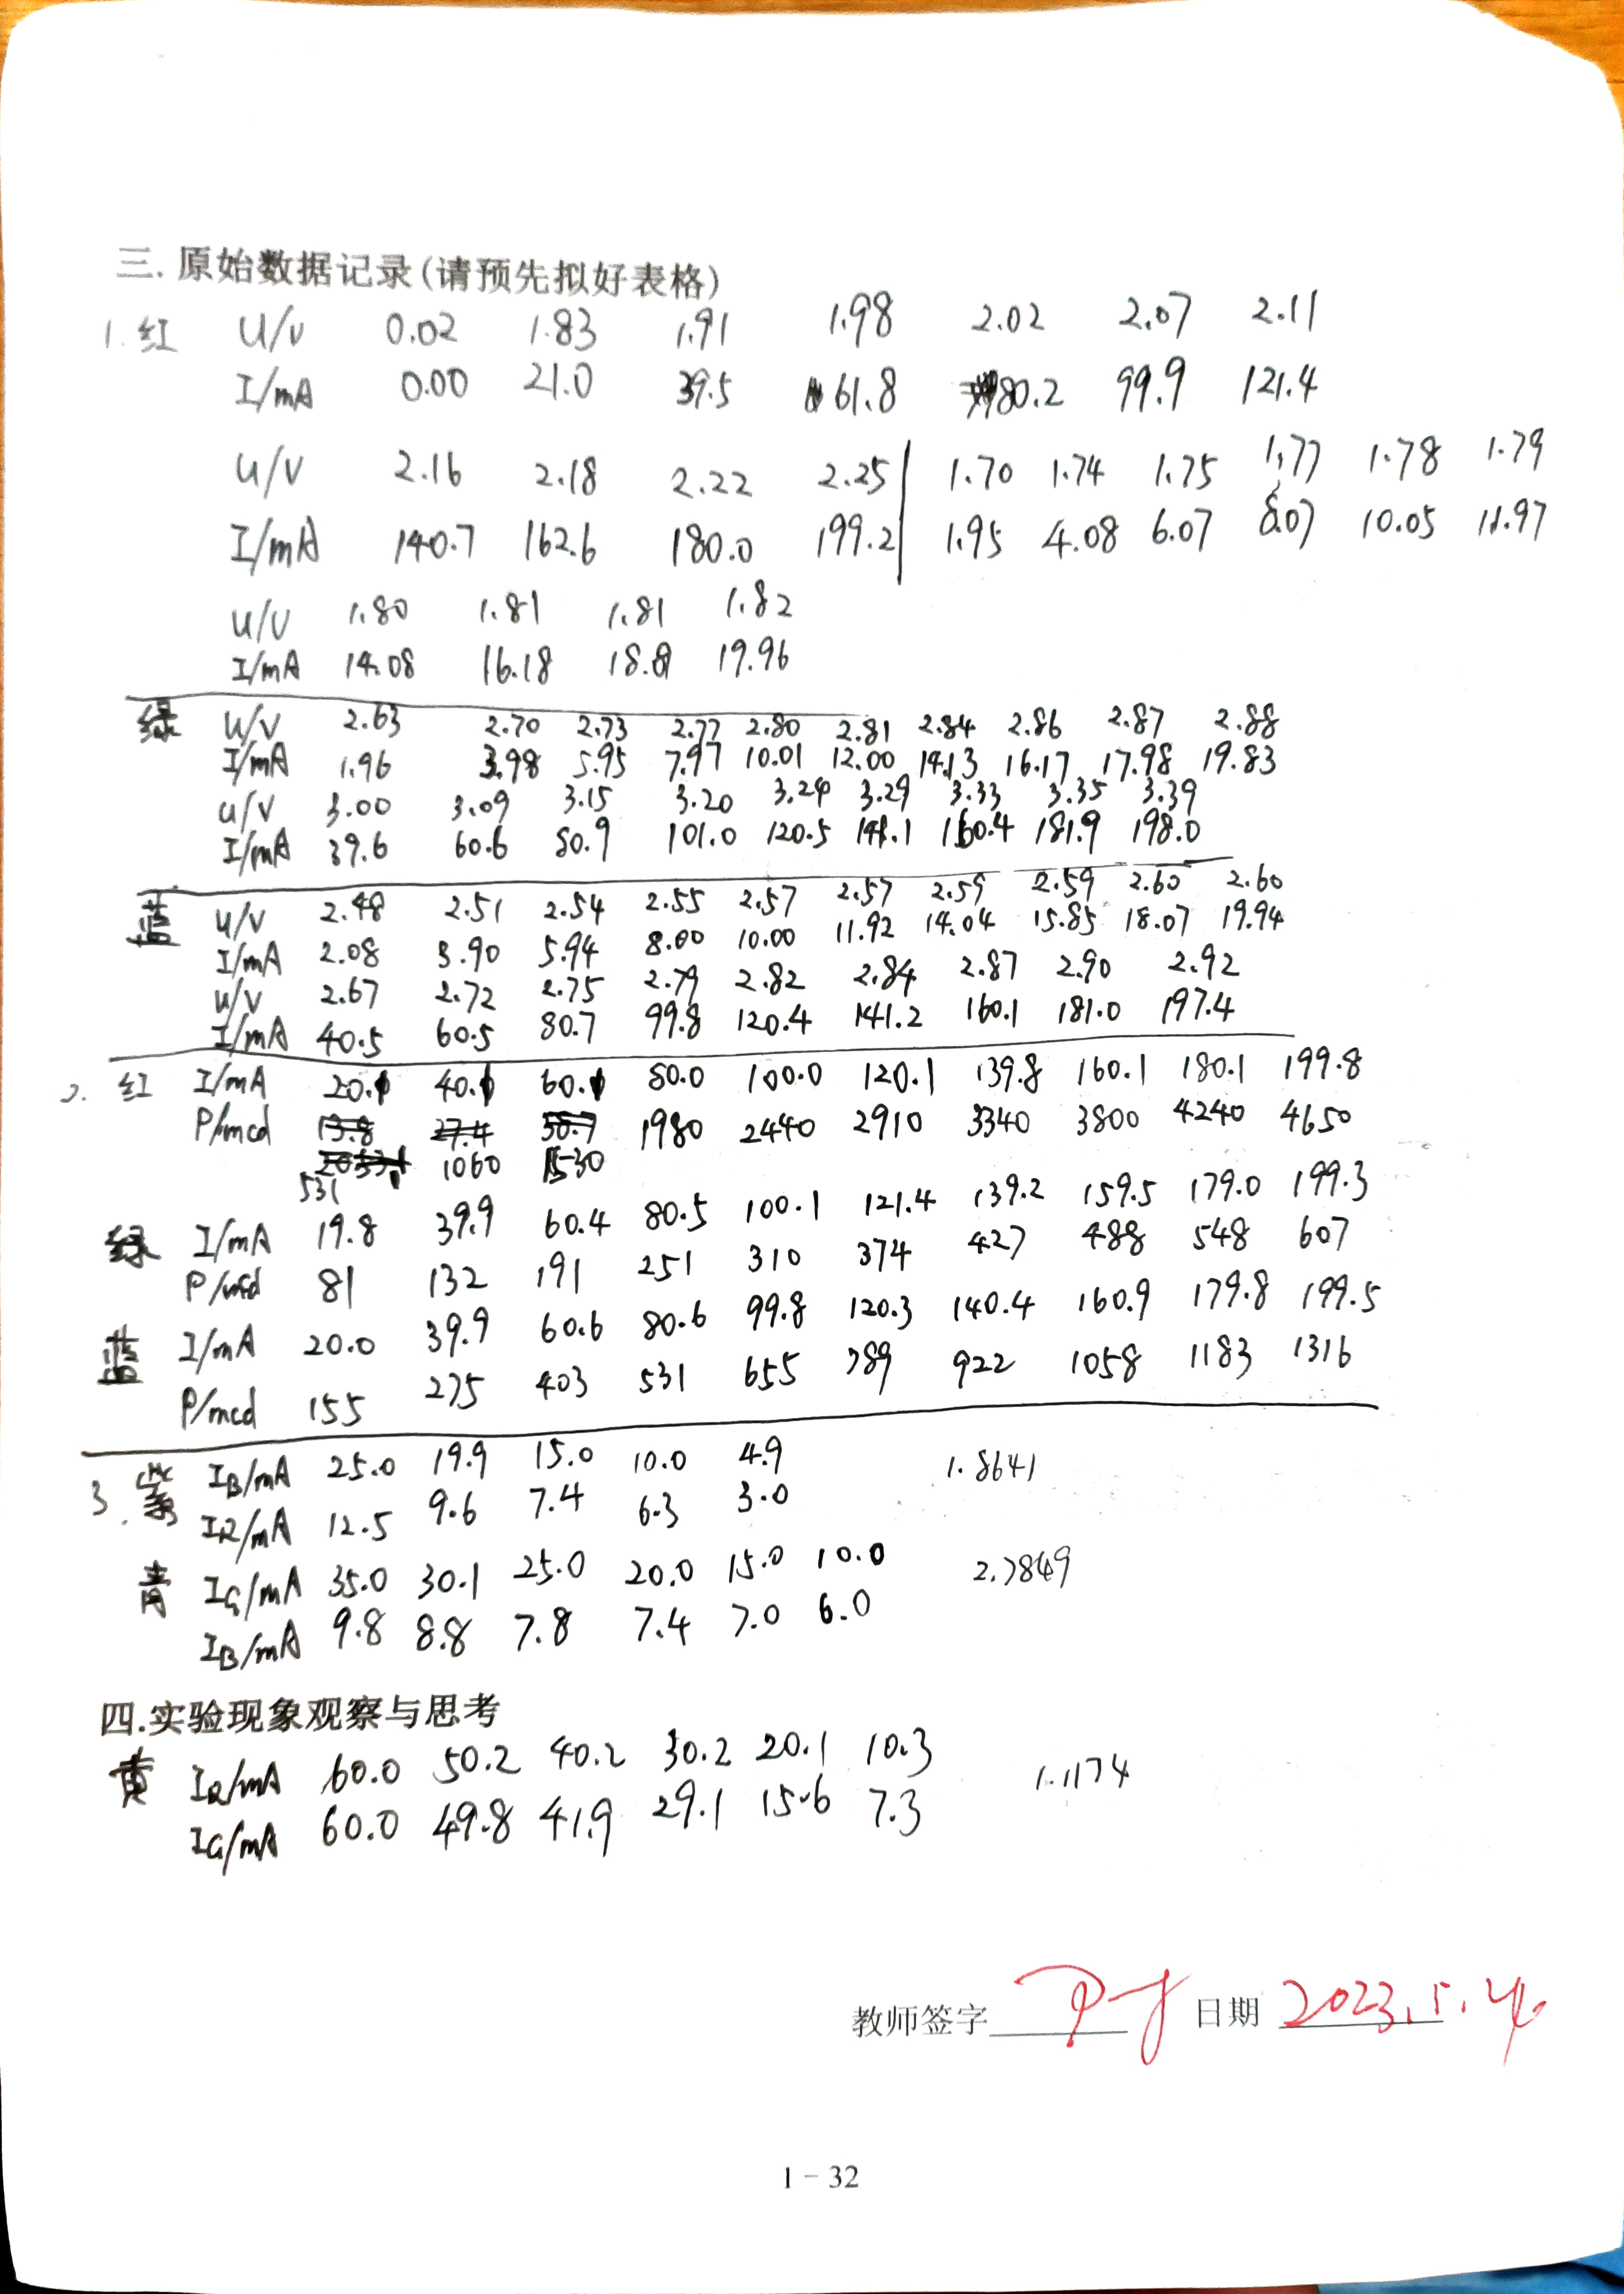 三. 原始数据记录(请预先拟好表格)
1. 红 U/V 0.02 1.83 1.91 1.98 2.02 2.07 2.11
I/mA 0.00 21.0 39.5 61.8 80.2 99.9 121.4
U/V 2.16 2.18 2.22 2.25 1.70 1.74 1.75 1.77 1.78 1.79
I/mA 140.7 162.6 180.0 199.2 1.95 4.08 6.07 8.07 10.05 11.97
U/V 1.80 1.81 1.81 1.82
I/mA 14.08 16.18 19.96
绿 U/V 2.63 2.70 2.73 2.77 2.80 2.81 2.84 2.86 2.87 2.88
I/mA 1.96 3.98 5.95 7.97 10.01 12.00 14.13 16.17 17.98 19.83
U/V 3.00 3.09 3.15 3.20 3.24 3.29 3.33 3.35 3.39
I/mA 39.6 60.6 80.9 101.0 120.5 141.1 160.4 181.9 198.0
蓝 U/V 2.48 2.51 2.54 2.55 2.57 2.57 2.59 2.59 2.60 2.60
I/mA 2.08 3.90 5.94 8.00 10.00 11.92 14.04 15.85 18.07 19.94
U/V 2.67 2.72 2.75 2.79 2.82 2.84 2.87 2.90 2.92
I/mA 40.5 60.5 80.7 99.8 120.4 141.2 160.1 181.0 197.4
2. 红 I/mA 20.1 40.1 60.1 80.0 100.0 120.1 139.8 160.1 180.1 199.8
P/mcd 13.8 27.4 1980 2440 2910 3340 3800 4240 4650
531 1060 1530
绿 I/mA 19.8 39.9 60.4 80.5 100.1 121.4 139.2 159.5 179.0 199.3
P/mcd 81 132 191 251 310 374 427 488 548 607
蓝 I/mA 20.0 39.9 60.6 80.6 99.8 120.3 140.4 160.9 179.8 199.5
P/mcd 155 275 403 531 655 789 922 1058 1183 1316
3. 紫 IB/mA 25.0 19.9 15.0 10.0 4.9 1.8641
IR/mA 12.5 9.6 7.4 6.3 3.0
青 IG/mA 35.0 30.1 25.0 20.0 15.0 10.0 2.7849
IB/mA 9.8 8.8 7.8 7.4 7.0 6.0
四.实验现象观察与思考
黄 IR/mA 60.0 50.2 40.2 30.2 20.1 10.3 1.1174
IG/mA 60.0 49.8 41.9 29.1 15.6 7.3
教师签字 日期 2023.5.24
1 - 32